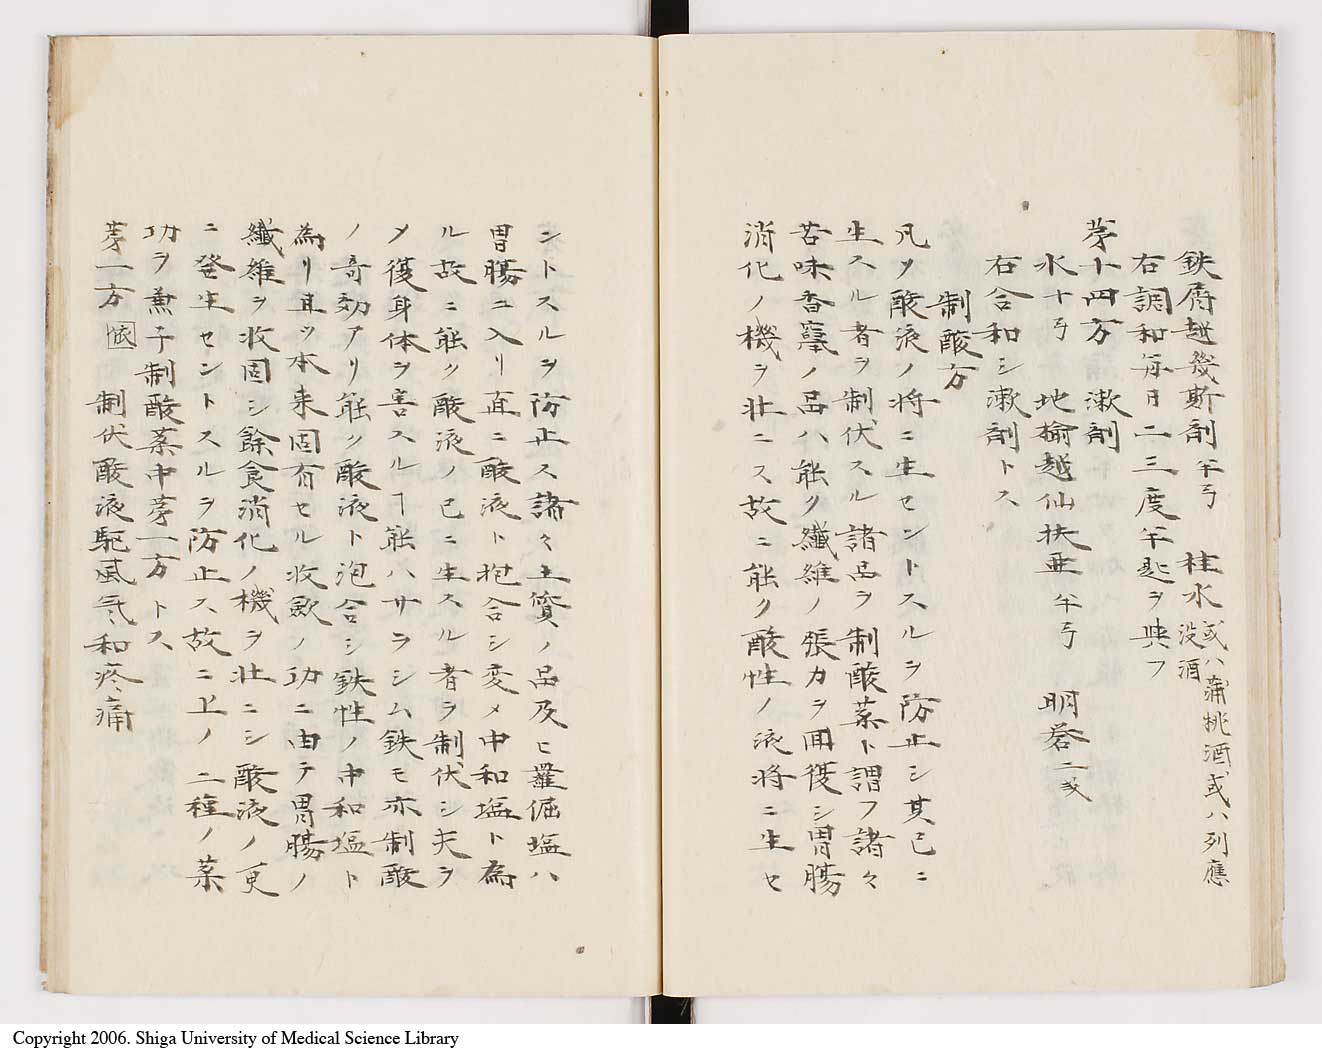 鉄屑越幾斯剤半弓 桂水 或ハ蒲桃酒或ハ列應
没酒
右調和毎日二三度半匙ヲ與フ
苐十四方 漱剤
水十弓 地楡越仙扶亜半弓 明礬二戔
右合和シ漱剤トス
制酸方
凡ソ酸液ノ将ニ生セントスルヲ防止シ其已ニ
生スル者ヲ制伏スル諸品ヲ制酸薬ト謂フ諸々
苦味香窼ノ品ハ能ク纖維ノ張力ヲ回復シ胃腸
消化ノ機ヲ壮ニス故ニ能ク酸性ノ液将ニ生セ
ントスルヲ防止ス諸々土質ノ品及ヒ羅倔塩ハ
胃腸ニ入リ直ニ酸液ト抱合シ変メ中和塩ト為
ル故ニ能ク酸液ノ已ニ生スル者ヲ制伏シ夫ヲ
メ復身体ヲ害スルヿ能ハサラシム鉄モ亦制酸
ノ奇効アリ能ク酸液ト泡合シ鉄性ノ中和塩ト
為リ且ツ本来固有セル收歛ノ功ニ由テ胃腸ノ
纖維ヲ收固シ餘食消化ノ機ヲ壮ニシ酸液ノ更
ニ発生セントスルヲ防止ス故ニ上ノ二種ノ薬
功ヲ兼子制酸薬中苐一方トス
苐一方 依 制伏酸液駆風気和疼痛